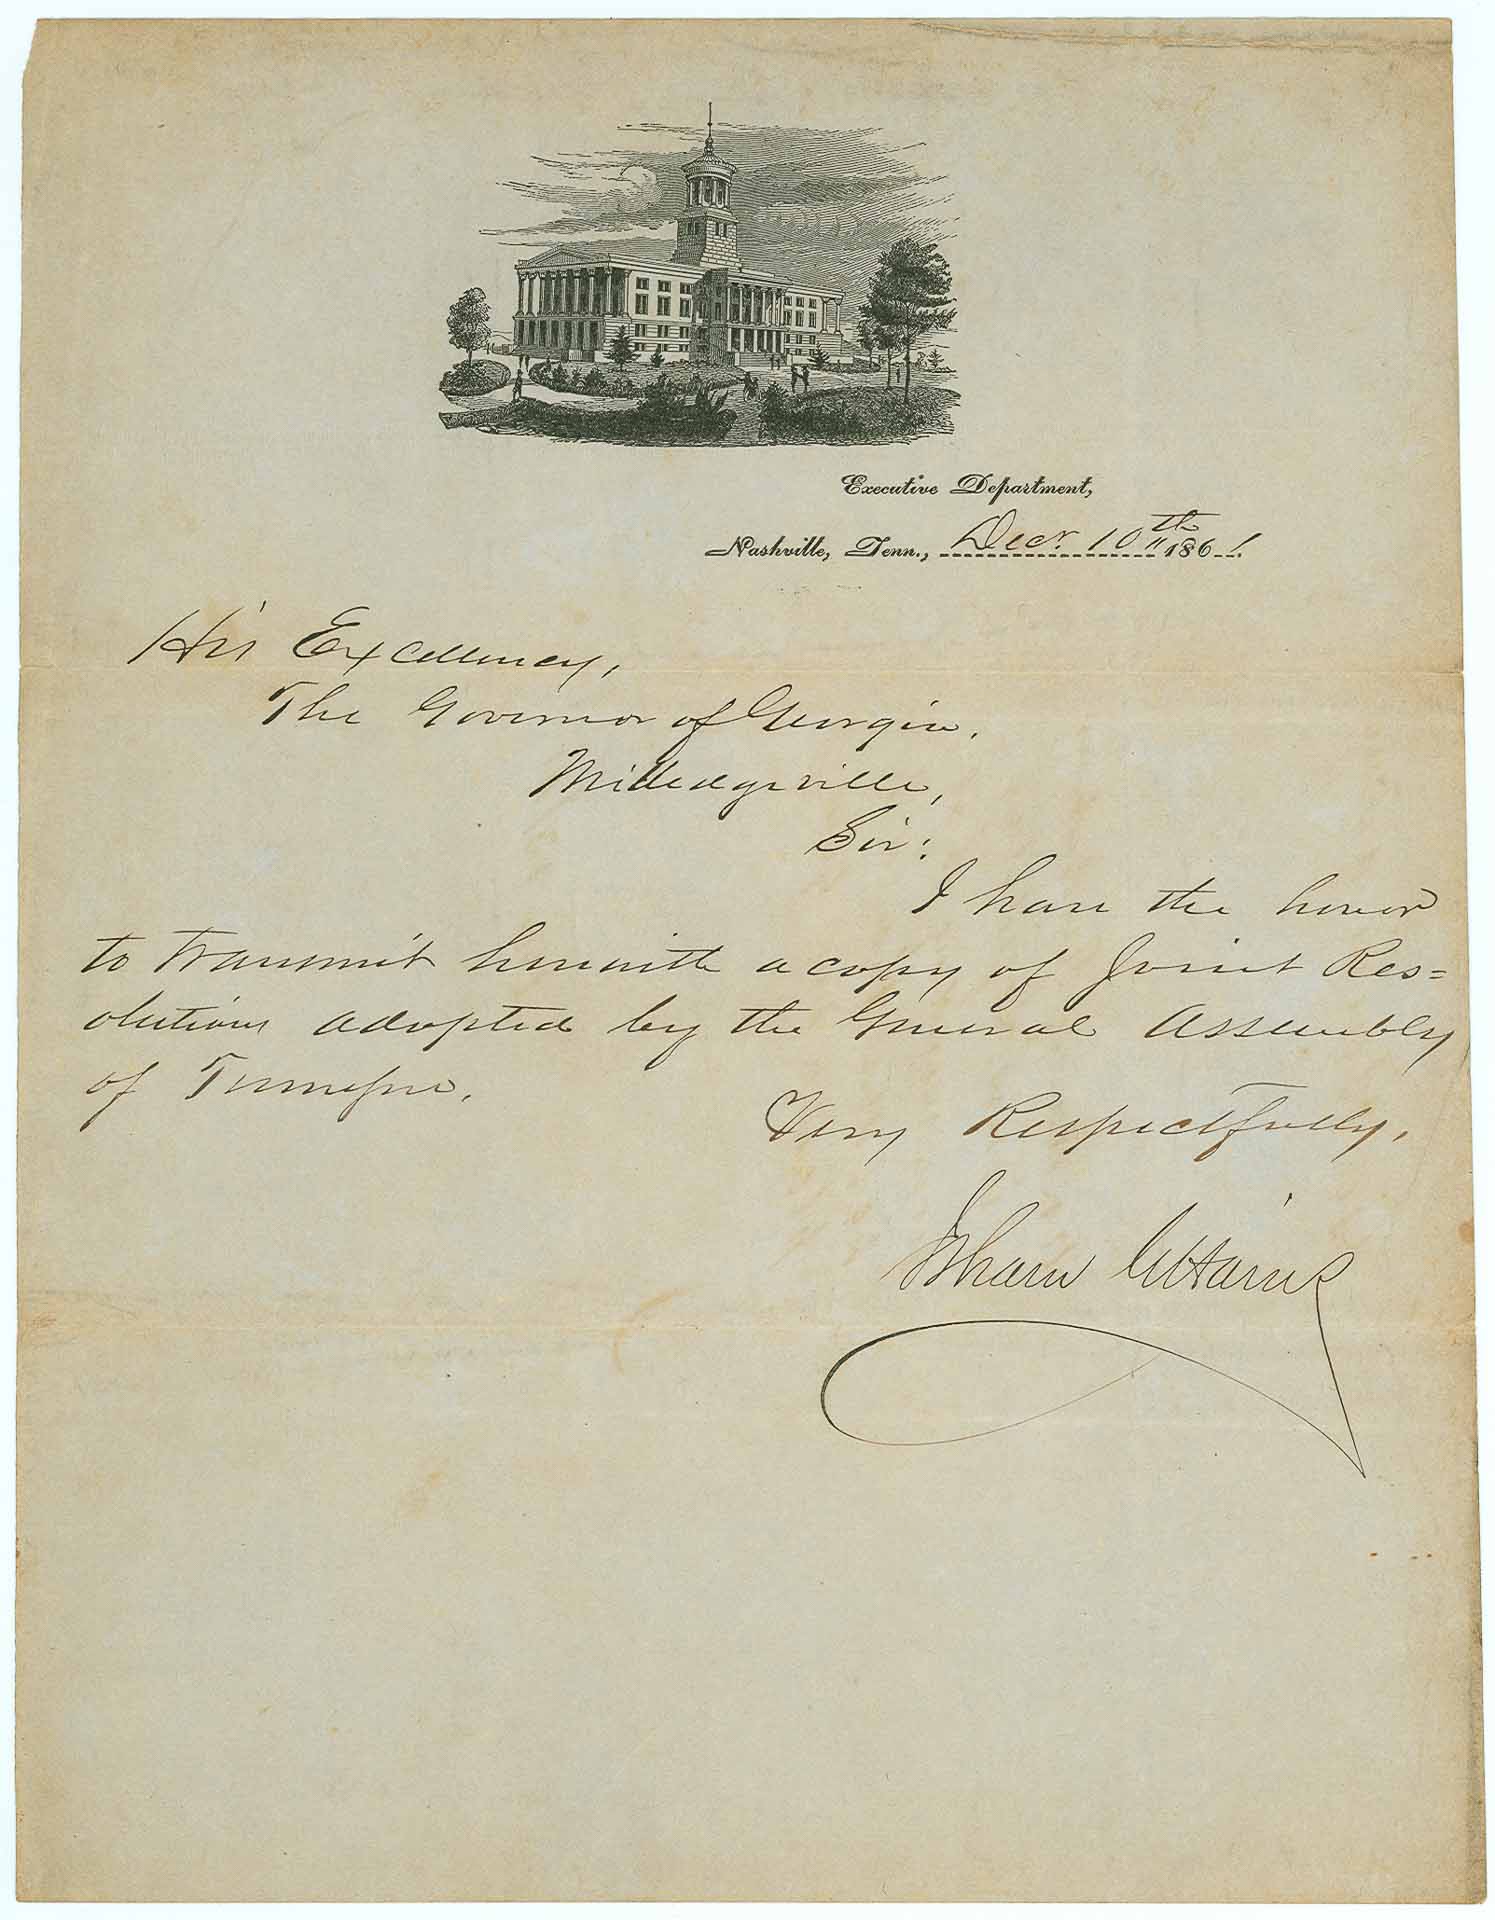 Executive Department,
Nashville, Tenn., Decr. 10th 1861
His Excellency,
The Governor of Georgia,
Milledgeville,
Sir:
I have the honor
to transmit herewith a copy of Joint Res=
olutions adopted by the General Assembly
of Tennessee.
Very Respectfully,
Isham G Harris